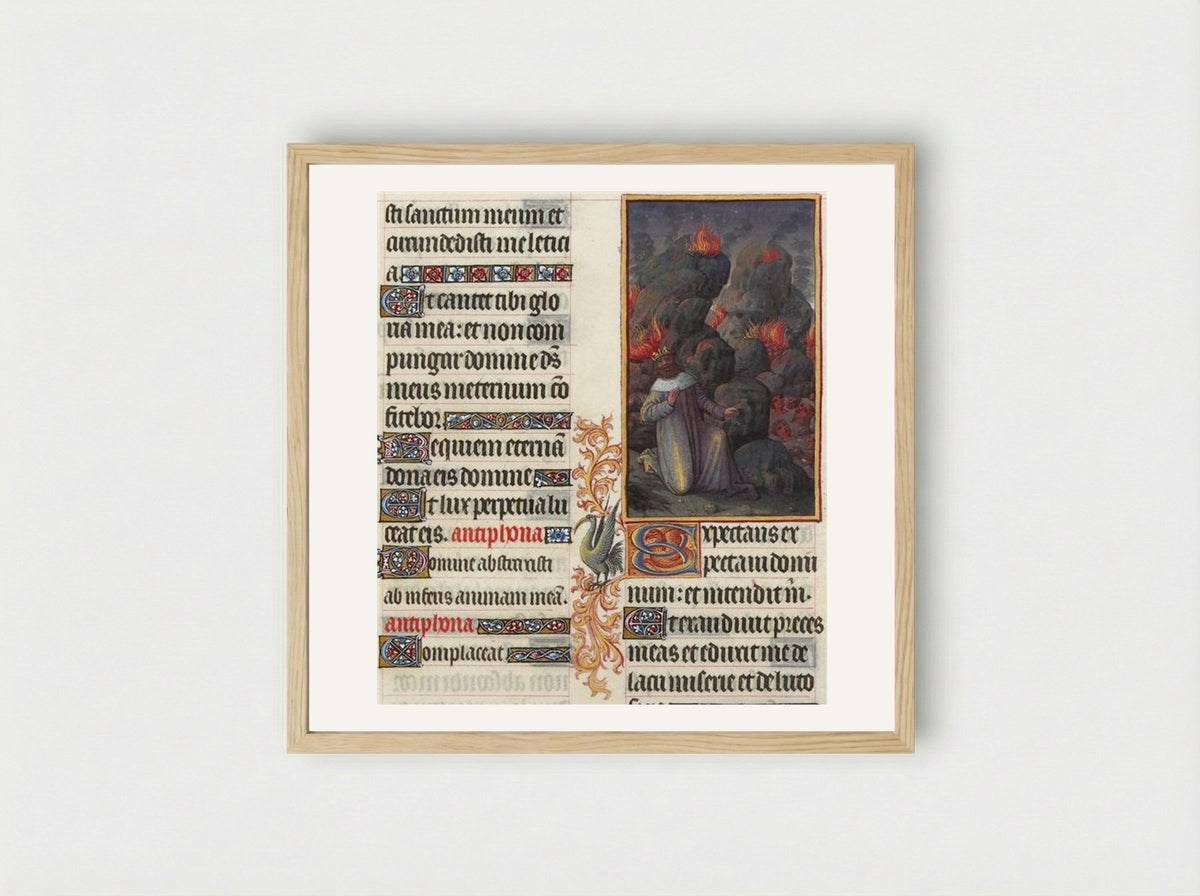 sti sanctum meum et
circundedisti me letici
a.
Et cantet tibi glo
ria mea: et non com
pungar domine ds̄
meus in eternum cō
fitebor.
Requiem eternā
dona eis domine
Et lux perpetua lu
ceat eis. antiphona
Domine abstraxisti
ab inferis animam meā.
antiphona
Complaceat
Expectans ex
pectaui domi
num: et intendit m̄.
Et exaudiuit preces
meas et eduxit me de
lacu miserie et de luto